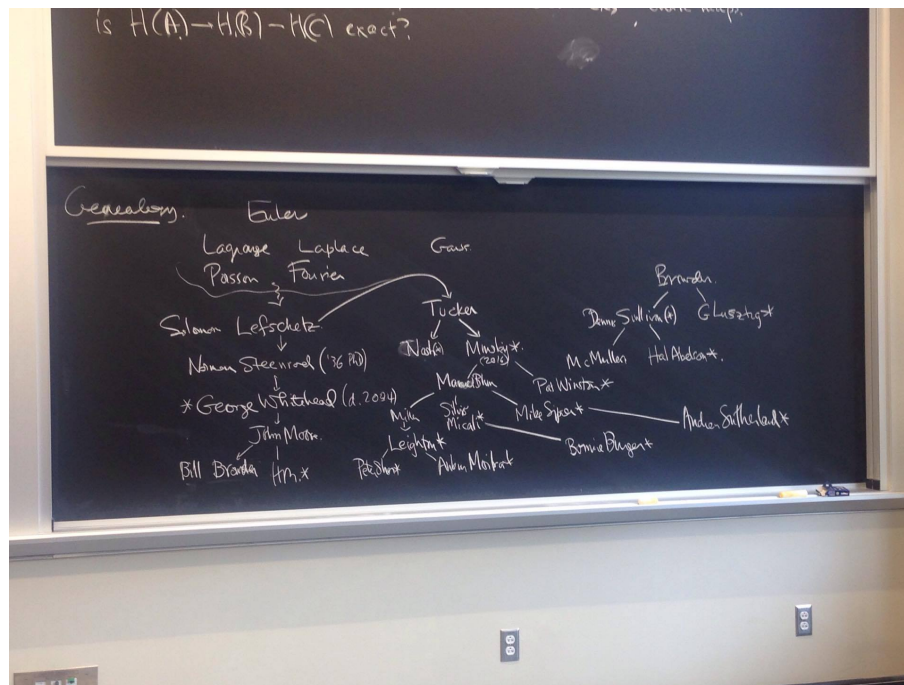 is H(A) → H(B) → H(C) exact?
Genealogy.
Euler
Lagrange Laplace Gauss
Poisson Fourier
Solomon Lefschetz
Norman Steenrod ('36 PhD)
*George Whitehead (d. 2004)
John Moore
Bill Browder HM*
Tucker
Nash(*) Minsky*
(2016)
Manuel Blum Pat Winston*
Silvio
Micali* Mike Sipser* Andrew Sutherland*
Leighton* Bonnie Berger*
Peter Shor* Ankur Moitra*
Browder
Dennis Sullivan(*) G Lusztig*
McMullen Hal Abelson*